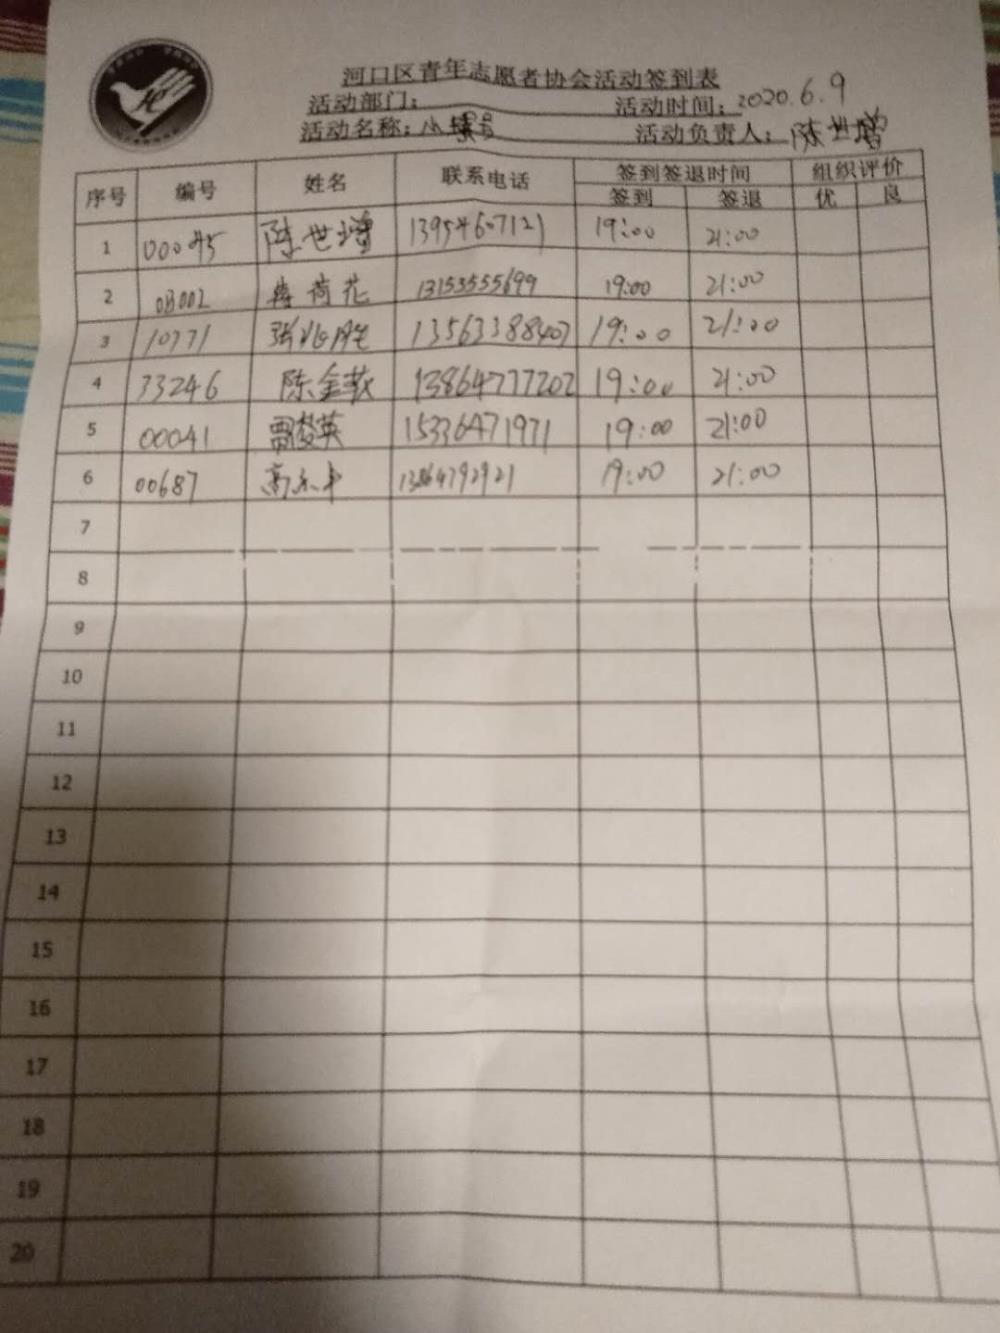 河口区青年志愿者协会活动签到表
活动部门: 活动时间: 2020.6.9
活动名称: 小螺号 活动负责人: 陈世增
序号 编号 姓名 联系电话 签到签退时间 组织评价
签到 签退 优 良
1 00045 陈世增 13954607121 19:00 21:00
2 0B002 荷花 13153555699 19:00 21:00
3 10771 张兆胜 13563388407 19:00 21:00
4 33246 陈金 13864777202 19:00 21:00
5 00041 贾俊英 15336471971 19:00 21:00
6 00687 高 13864792921 19:00 21:00
7
8
9
10
11
12
13
14
15
16
17
18
19
20